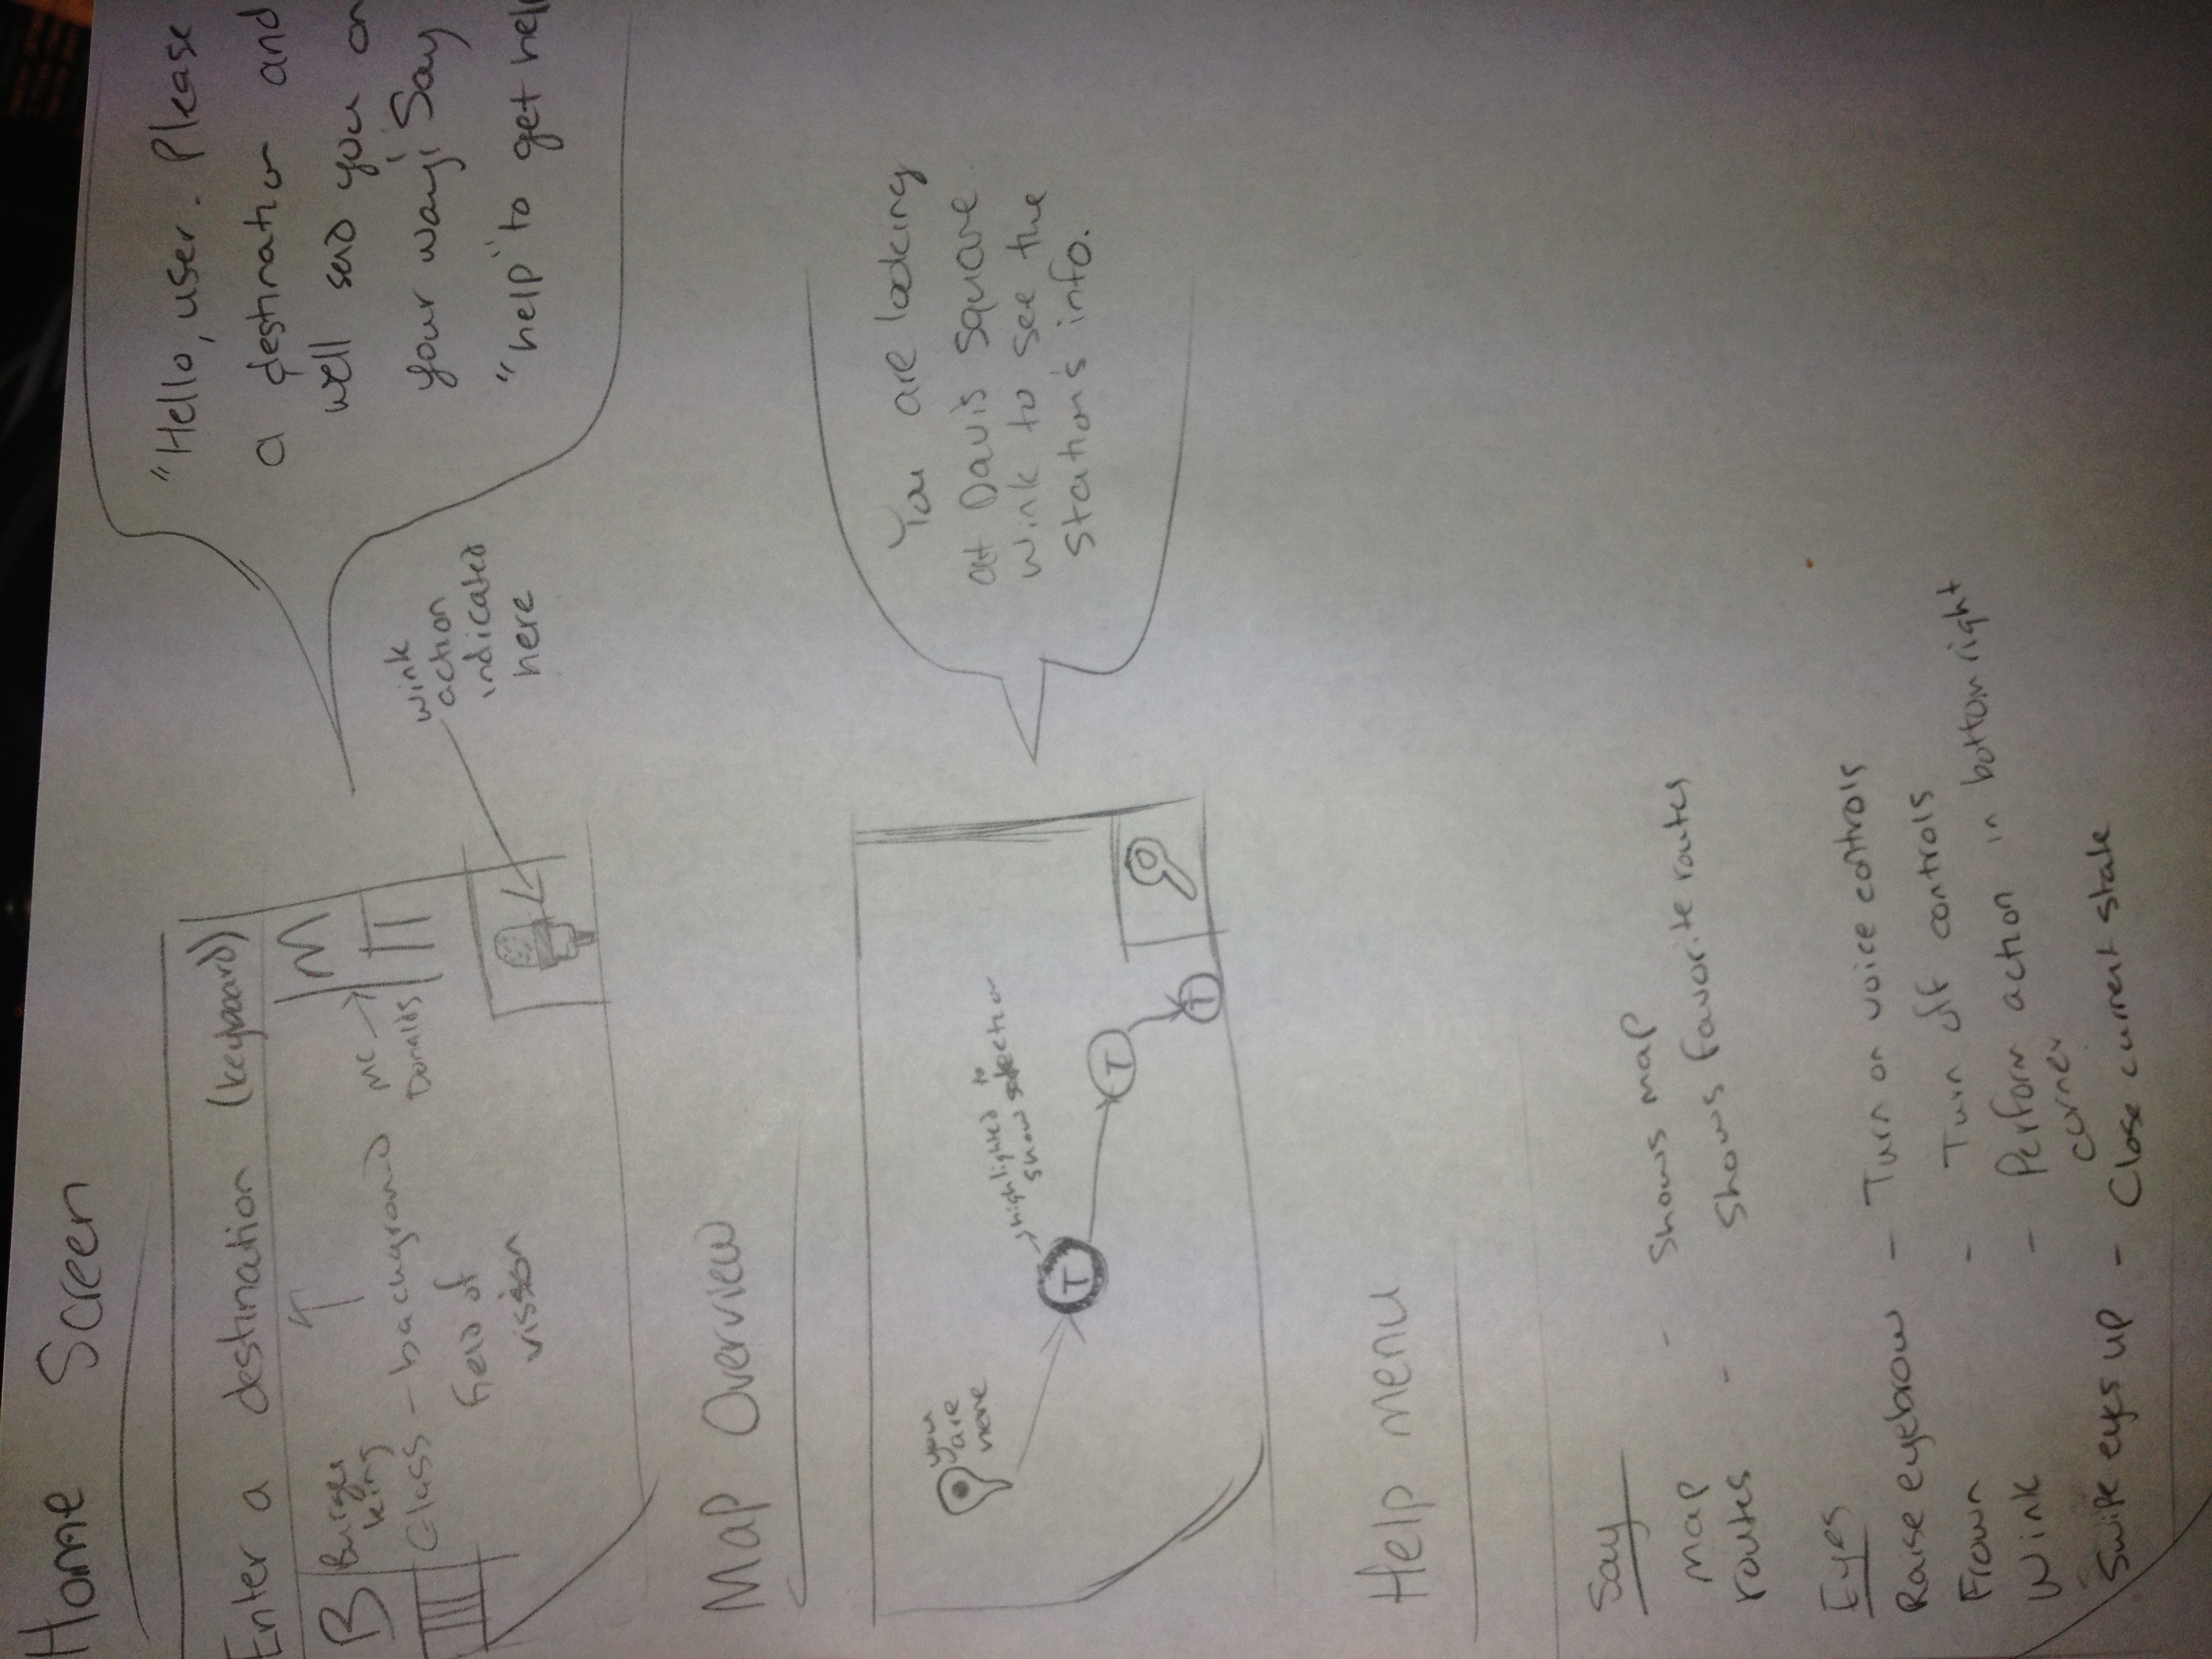 Home Screen
Enter a destination (keyboard)
B
Burger
king
Glass - background
field of
vission
MC
Donalds
M
wink
action
indicated
here
"Hello, user. Please
a destination and
we'll send you on
your way! Say
"help" to get hel
Map Overview
you
are
here
highlighted to
show selection
T
T
T
You are looking
at Davis Square
Wink to see the
station's info.
Help menu
Say
map - Shows map
routes - Shows favorite routes
Eyes
Raise eyebrow - Turn on voice controls
Frown - Turn off controls
Wink - Perform action in bottom right
corner
Swipe eyes up - Close current state